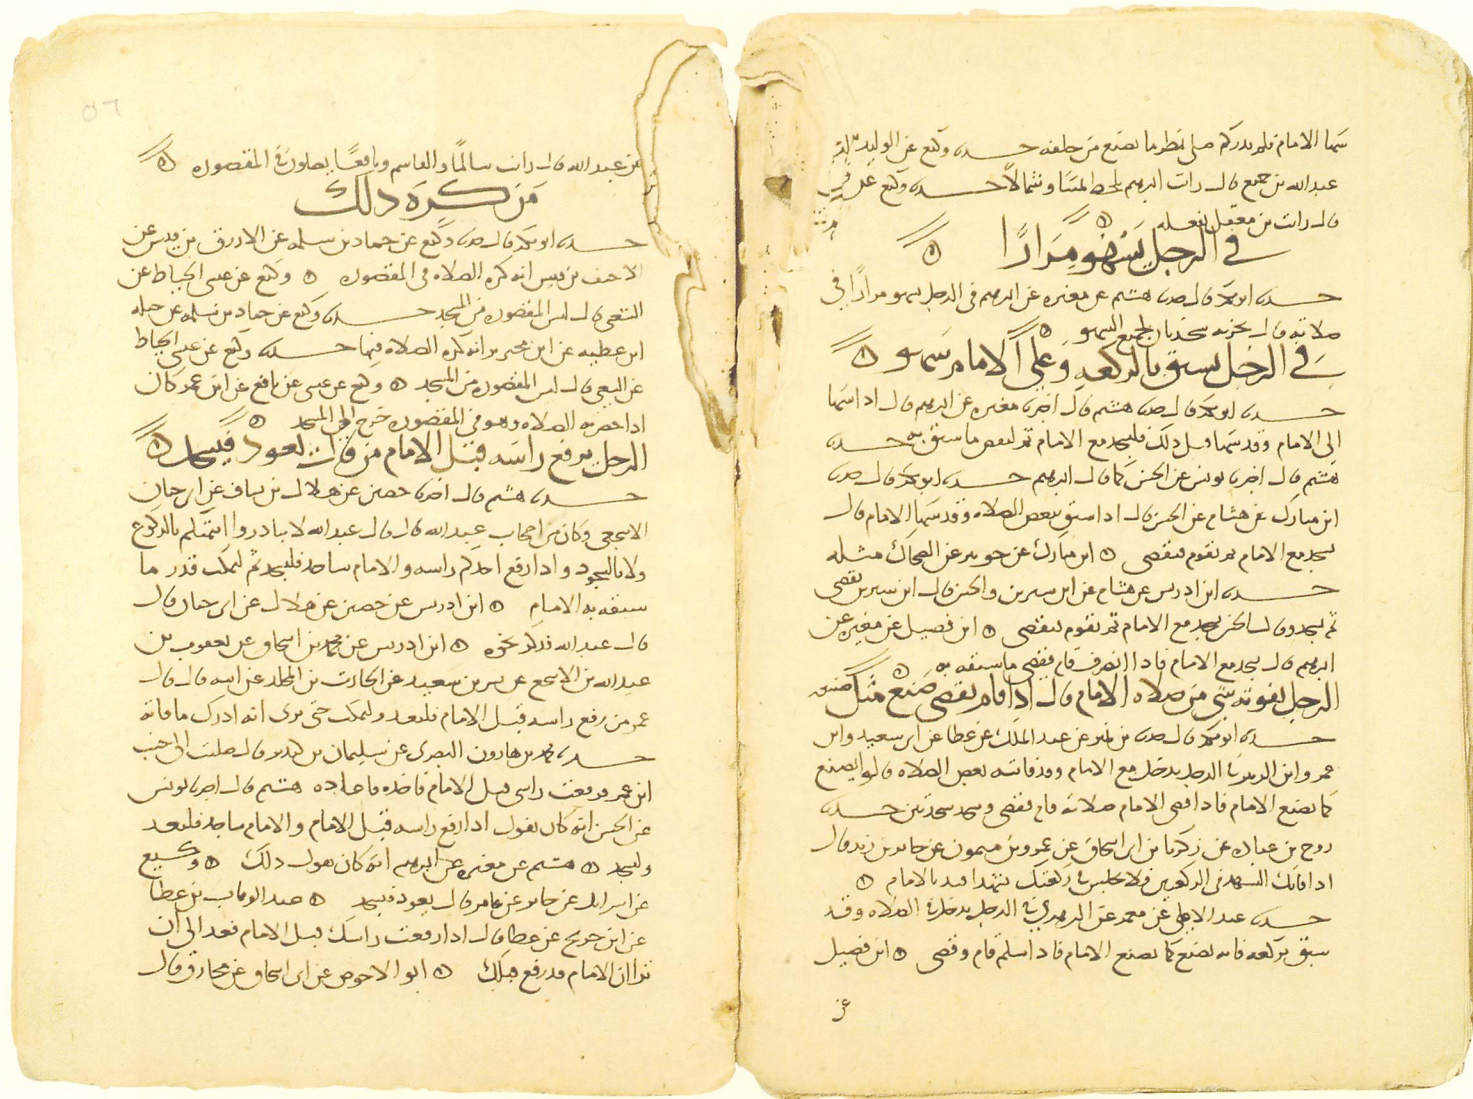 سها الامام فلم يدركم صلى نظر ما يصنع من خلفه حدثنا وكيع عن الوليد بن
عبد الله بن جميع قال رايت ابرهيم يلحظ يمينا وشمالا حدثنا وكيع عن
قال رايت بن معقل يفعله
في الرجل يسهو مرارا
حدثنا ابو بكر قال حدثنا هشيم عن مغيرة عن ابرهيم في الرجل يسهو مرارا في
صلاته قال تجزيه سجدتان لجميع السهو
في الرجل يسبق بالركعة وعلى الامام سهو
حدثنا ابو بكر قال حدثنا هشيم قال اخبرنا مغيرة عن ابرهيم قال اذا انتهى
الى الامام وقد سها قبل ذلك فليسجد مع الامام ثم ليقض ما سبق به حدثنا
هشيم قال اخبرنا يونس عن الحسن كما قال ابرهيم حدثنا ابو بكر قال حدثنا
ابن مبارك عن هشام عن الحسن قال اذا سبق ببعض الصلاه وقد سها الامام قال
يسجد مع الامام ثم يقوم فيقضي ابن مبارك عن جويبر عن الضحاك مثله
حدثنا ابن ادريس عن هشام عن ابن سيرين والحسن قال ابن سيرين يقضي
ثم يسجد وقال الحسن يسجد مع الامام ثم يقوم فيقضي ابن فضيل عن مغيرة عن
ابرهيم قال يسجد مع الامام فاذا انصرف قام فقضى ما سبقه به
الرجل يفوته شي من صلاه الامام قال اذا قام يقضي صنع مثل صنيعه
حدثنا ابو بكر قال حدثنا بن نمير عن عبد الملك عن عطا عن ابي سعيد وابن
عمر وابن الزبير في الرجل يدخل مع الامام وقد فاتته بعض الصلاه قالوا يصنع
كما يصنع الامام فاذا قضى الامام صلاته قام فقضى وسجد سجدتين حدثنا
روح بن عباده عن زكريا بن ابي اسحاق عن عمرو بن ميمون عن جابر بن زيد قال
اذا فاتك التشهد في الركعتين
حدثنا عبد الاعلى عن معمر عن الزهري في الرجل يدخل في الصلاه وقد
سبق بركعه فانه يصنع كما يصنع الامام فاذا سلم قام وقضى ابن فضيل
عن
٥٦
عن عبيد الله قال رايت سالما والقاسم ونافعا يصلون في المقصوره
من كره ذلك
حدثنا ابو بكر قال حدثنا وكيع عن حماد بن سلمه عن الازرق بن قيس عن
الاحنف بن قيس انه كره الصلاه في المقصوره وكيع عن عيسى الخياط عن
الشعبي قال ليس المقصوره من المسجد حدثنا وكيع عن حماد بن سلمه عن جبله
ابن عطيه عن ابن محيريز انه كره الصلاه فيها حدثنا وكيع عن عيسى الخياط
عن الشعبي قال ليس المقصوره من المسجد وكيع عن عيسى عن نافع عن ابن عمر كان
اذا حضرته الصلاه وهو في المقصوره خرج الى المسجد
الرجل يرفع راسه قبل الامام من قال يعود فيسجد
حدثنا هشيم قال اخبرنا حصين عن هلال بن يساف عن ابي حيان
الاشجعي وكان من اصحاب عبد الله قال قال عبد الله لا تبادروا ايمتكم بالركوع
ولا بالسجود واذا رفع احدكم راسه والامام ساجد فليسجد ثم ليمكث قدر ما
سبقه به الامام ابن ادريس عن حصين عن هلال عن ابي حيان قال
قال عبد الله فذكر نحوه ابن ادريس عن محمد بن اسحاق عن يعقوب بن
عبد الله بن الاشج عن بسر بن سعيد عن الحارث بن المخلد عن ابيه قال قال
عمر من رفع راسه قبل الامام فليعد وليمكث حتى يرى انه ادرك ما فاته
حدثنا محمد بن هارون البصري عن سليمان بن كندير قال صليت الى جنب
ابن عمر فرفعت راسي قبل الامام فاخذه فاعاده هشيم قال اخبرنا يونس
عن الحسن انه كان يقول اذا رفع راسه قبل الامام والامام ساجد فليعد
وليسجد هشيم عن مغيرة عن ابرهيم انه كان يقول ذلك وكيع
عن اسرايل عن جابر عن عامر قال يعود فيسجد عبد الوهاب بن عطا
عن ابن جريج عن عطا قال اذا رفعت راسك قبل الامام فعد الى ان
ترى ان الامام قد رفع قبلك ابو الاحوص عن ابي اسحاق عن مخارق قال